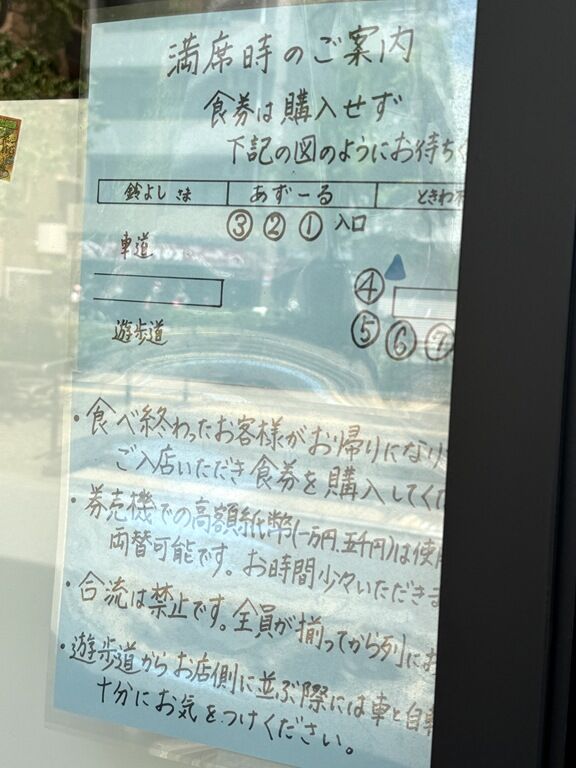 満席時のご案内
食券は購入せず
下記の図のようにお待ちく
鈴よし さま あずーる ときわ
③ ② ① 入口
車道
④
遊歩道 ⑤ ⑥ ⑦
・食べ終わったお客様がお帰りになり
ご入店いただき食券を購入してくだ
・券売機での高額紙幣(一万円、五千円)は使
両替可能です。お時間少々いただきま
・合流は禁止です。全員が揃ってから列にお
・遊歩道からお店側に並ぶ際には車と自転
十分にお気をつけください。